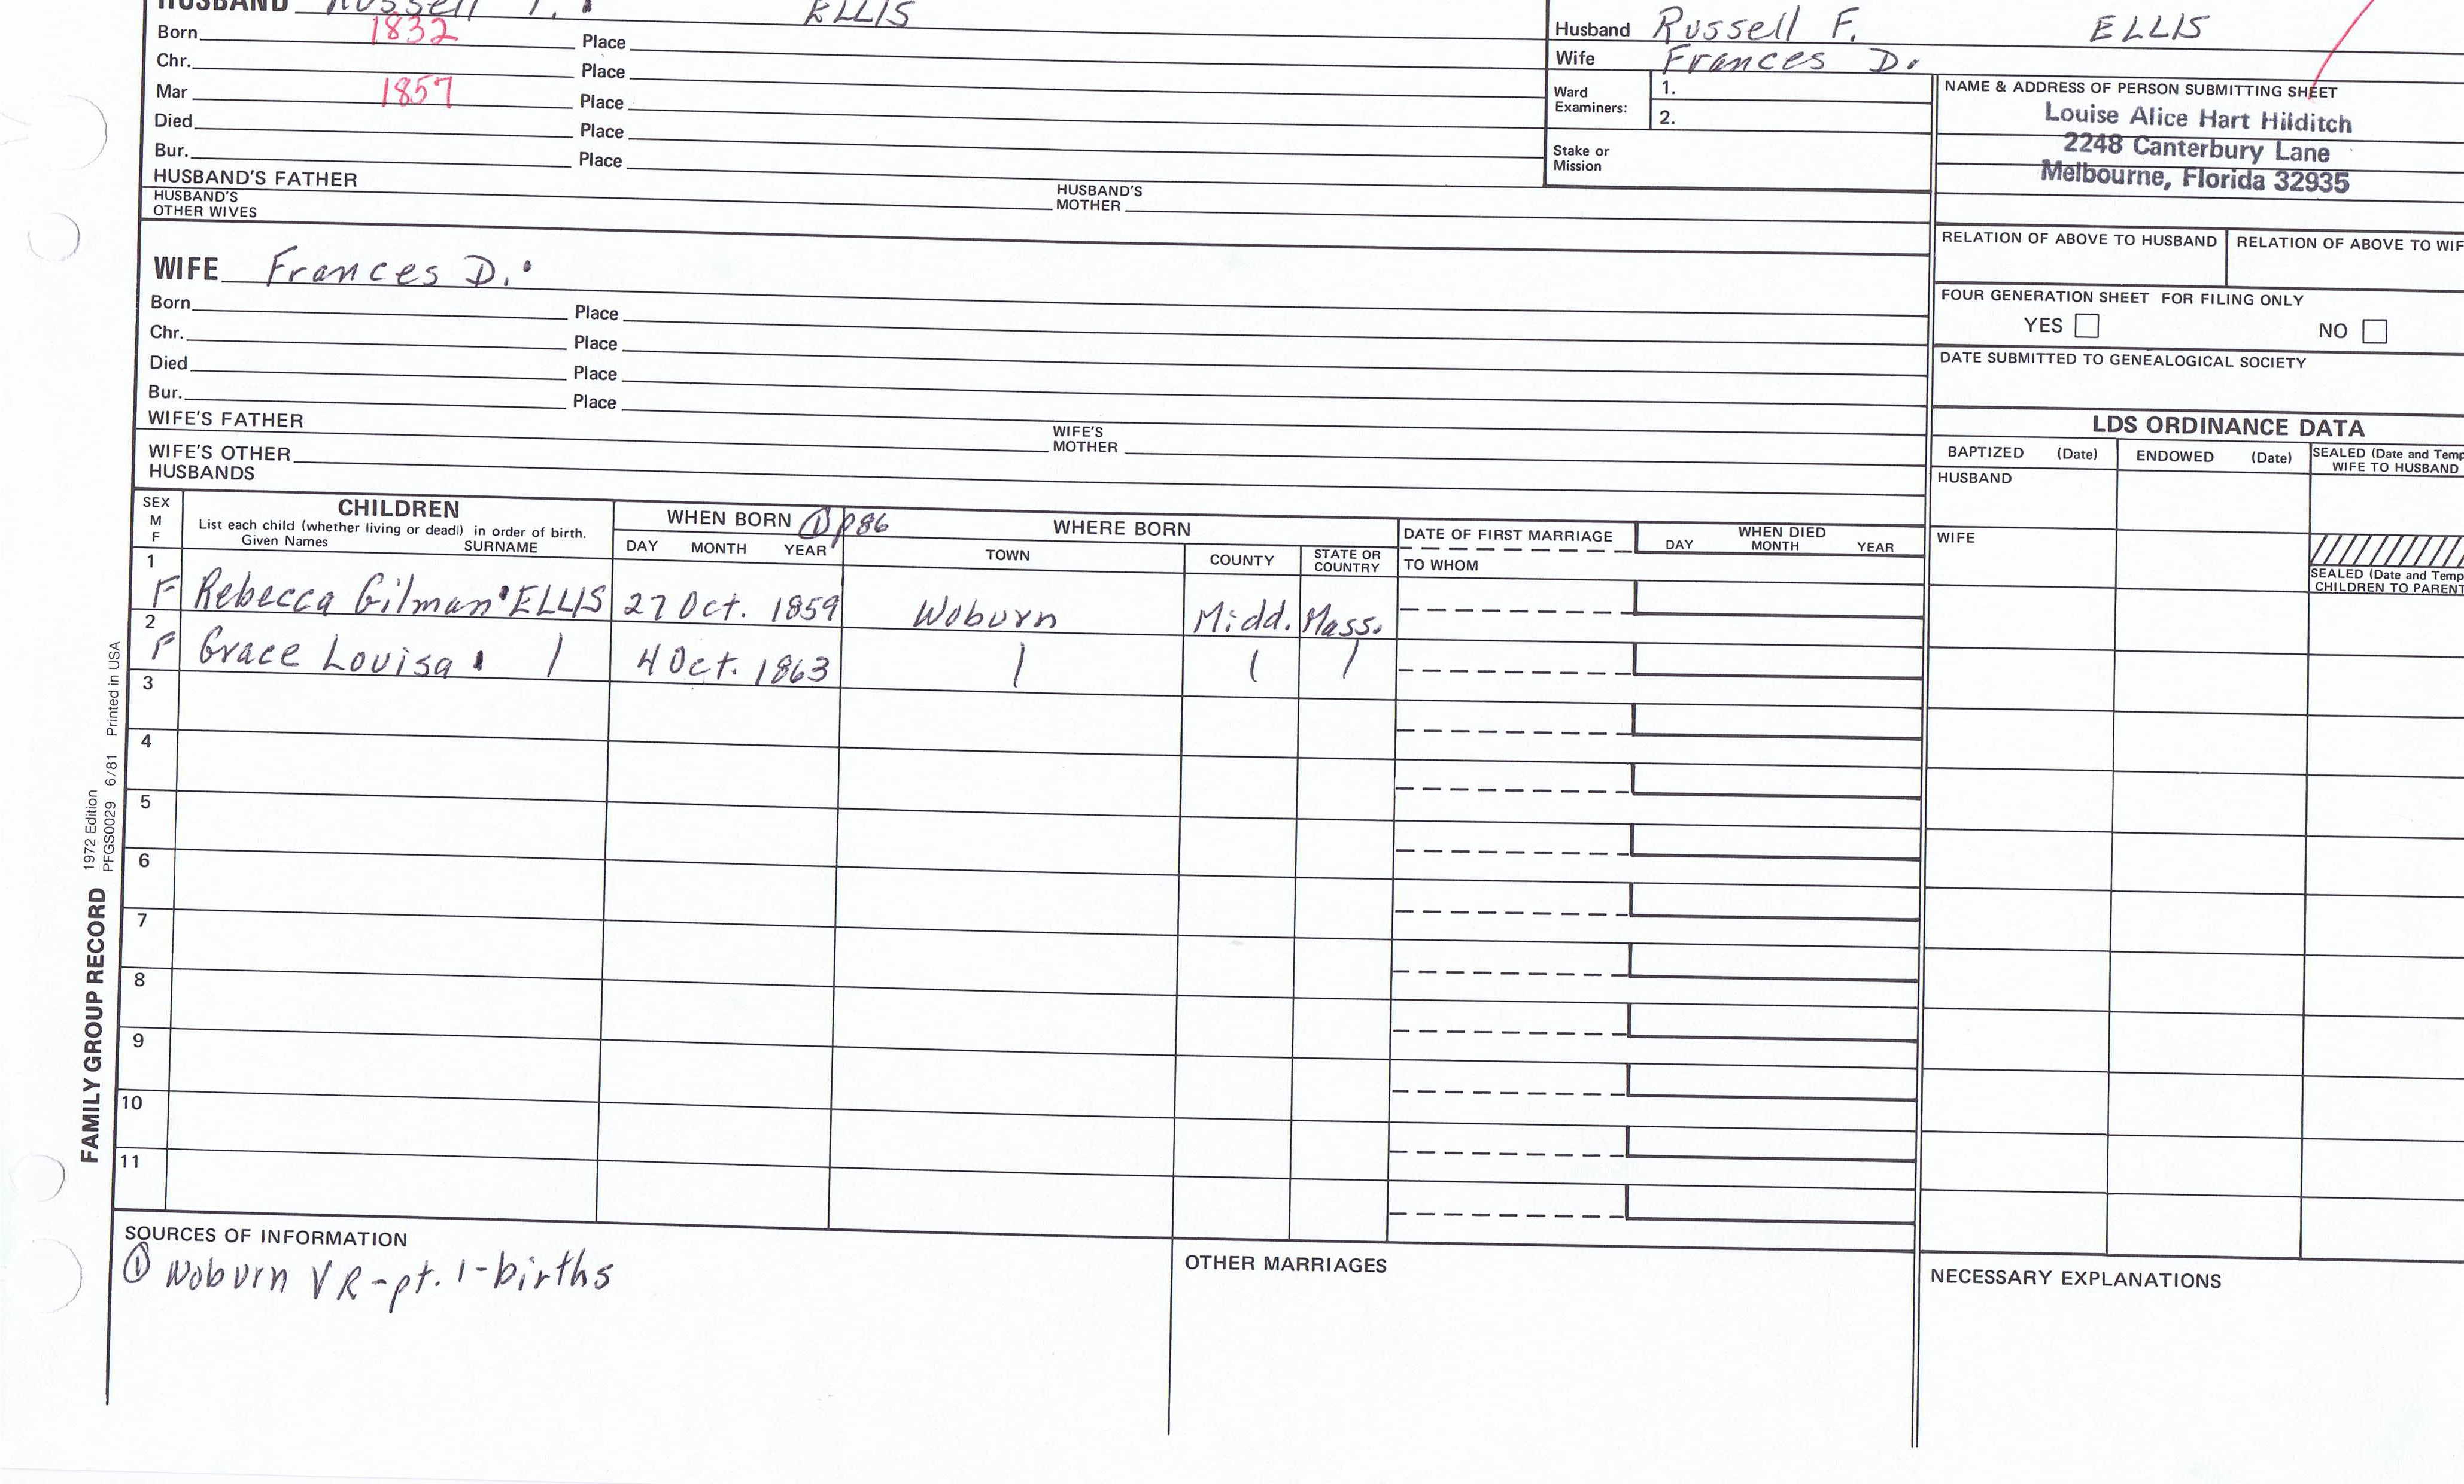 HUSBAND Russell F. ELLIS
Born 1832 Place
Chr. Place
Mar 1857 Place
Died Place
Bur. Place
HUSBAND'S FATHER HUSBAND'S MOTHER
HUSBAND'S OTHER WIVES
Husband Russell F. ELLIS
Wife Frances D.
Ward Examiners: 1.
2.
Stake or Mission
NAME & ADDRESS OF PERSON SUBMITTING SHEET
Louise Alice Hart Hilditch
2248 Canterbury Lane
Melbourne, Florida 32935
RELATION OF ABOVE TO HUSBAND RELATION OF ABOVE TO WIF
FOUR GENERATION SHEET FOR FILING ONLY
YES NO
DATE SUBMITTED TO GENEALOGICAL SOCIETY
WIFE Frances D.
Born Place
Chr. Place
Died Place
Bur. Place
WIFE'S FATHER WIFE'S MOTHER
WIFE'S OTHER HUSBANDS
LDS ORDINANCE DATA
BAPTIZED (Date) ENDOWED (Date) SEALED (Date and Temp
WIFE TO HUSBAND
HUSBAND
WIFE
SEALED (Date and Temp
CHILDREN TO PARENT
SEX M F
CHILDREN
List each child (whether living or dead) in order of birth.
Given Names SURNAME
WHEN BORN ① p86
DAY MONTH YEAR
WHERE BORN
TOWN COUNTY STATE OR COUNTRY
DATE OF FIRST MARRIAGE
TO WHOM
WHEN DIED
DAY MONTH YEAR
1 F Rebecca Gilman ELLIS 27 Oct. 1859 Woburn Midd. Mass.
2 F Grace Louisa 4 Oct. 1863
3
4
5
6
7
8
9
10
11
SOURCES OF INFORMATION
① Woburn VR-pt. 1-births
OTHER MARRIAGES
NECESSARY EXPLANATIONS
FAMILY GROUP RECORD 1972 Edition
PFGS0029 6/81 Printed in USA